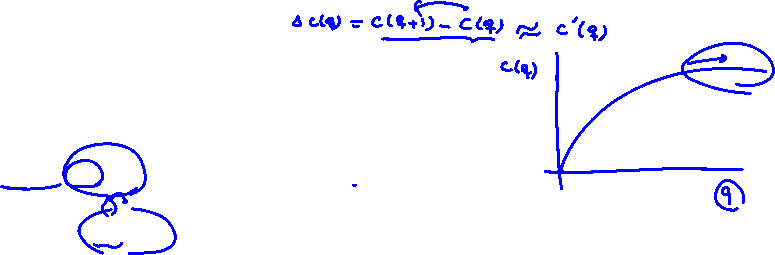 Δ C(q) = C(q+1) - C(q) ≈ C'(q)
C(q)
q